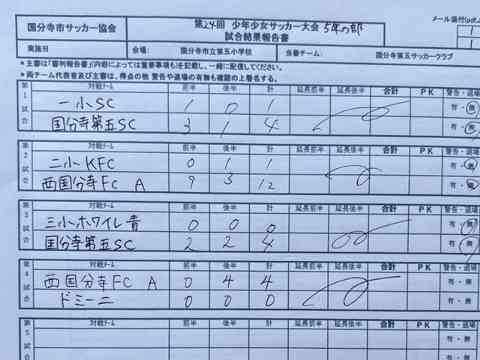 国分寺市サッカー協会 第24回 少年少女サッカー大会 5年の部 メール添付(p
試合結果報告書
実施日 会場: 国分寺市立第五小学校 当番チーム: 国分寺第五サッカークラブ
*主審は「審判報告書」内容には重要事項も記載し、一緒に配信してください。
*両チーム代表者及び主審は、得点の他 警告や退場の有無も確認の上署名する。
第1試合 対戦チーム 前半 後半 合計 延長前半 延長後半 合計 PK 警告・退場
一小SC 1 0 1 有・無
国分寺第五SC 3 1 4
第2試合 対戦チーム 前半 後半 合計 延長前半 延長後半 合計 PK 警告・退場
二小KFC 0 1 1 有・無
西国分寺FC A 9 3 12 有・無
第3試合 対戦チーム 前半 後半 合計 延長前半 延長後半 合計 PK 警告・退場
三小ホワイレ青 0 0 0 有・無
国分寺第五SC 2 2 4 有・無
第4試合 対戦チーム 前半 後半 合計 延長前半 延長後半 合計 PK 警告・退場
西国分寺FC A 0 4 4 有・無
ドミーニ 0 0 0 有・無
第5 対戦チーム 前半 後半 合計 延長前半 延長後半 合計 PK 警告・退場